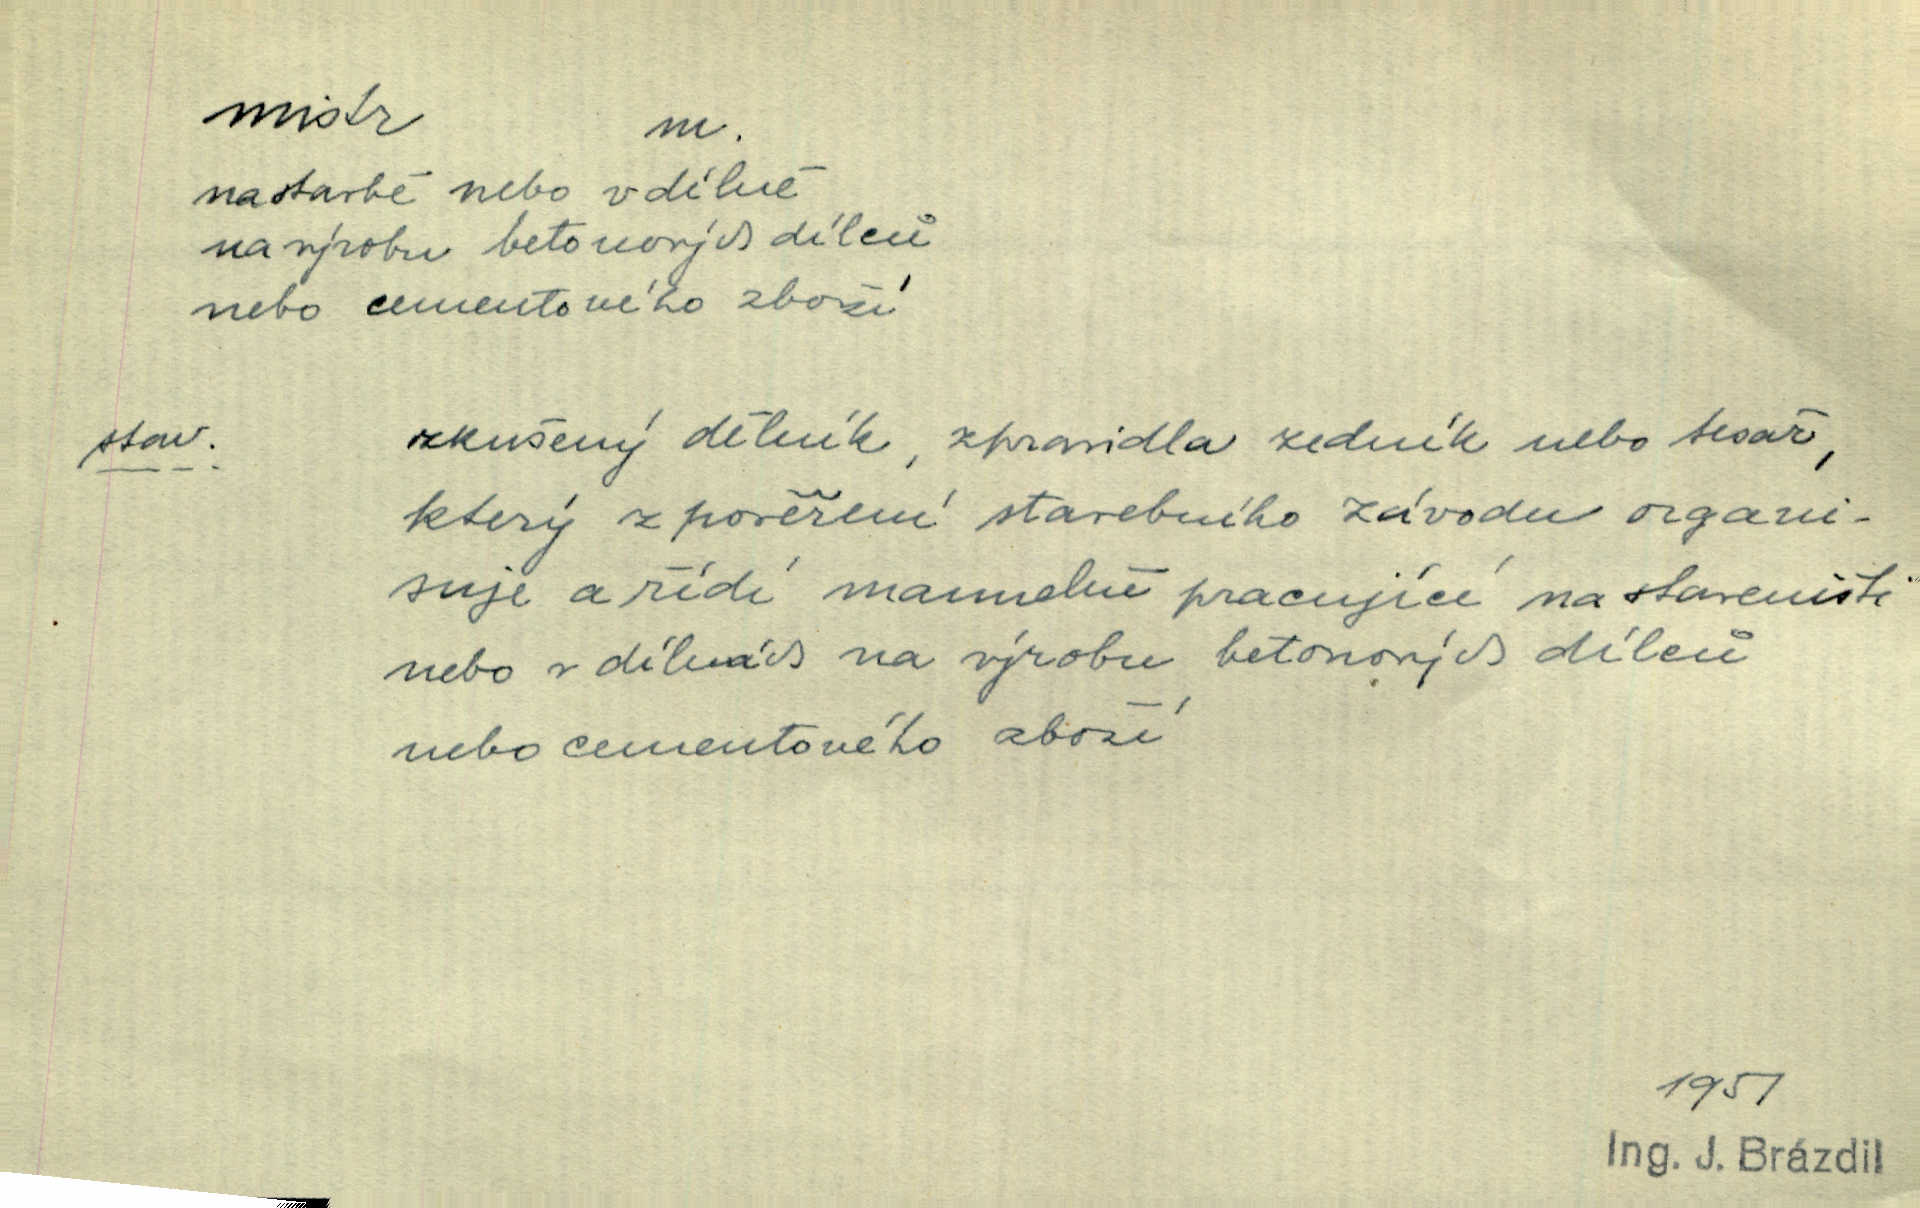 mistr m.
na stavbě nebo v dílně
na výrobu betonových dílců
nebo cementového zboží
stav. zkušený dělník, zpravidla zedník nebo tesař,
který z pověření stavebního závodu organi-
suje a řídí manuelně pracující na staveništi
nebo v dílnách na výrobu betonových dílců
nebo cementového zboží
1951
Ing. J. Brázdil